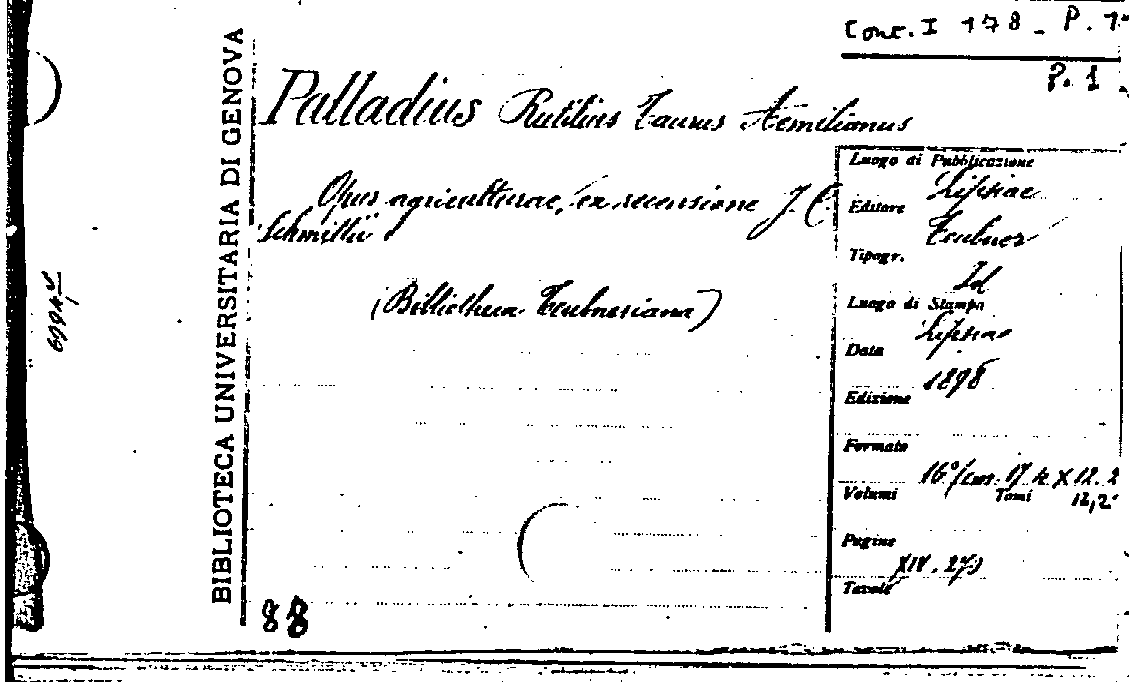 Conc. I 178 - P. 1
P. 1
BIBLIOTECA UNIVERSITARIA DI GENOVA
Palladius Rutilius Taurus Aemilianus
Opus agriculturae, ex recensione J. C.
Schmittii
(Bibliotheca Teubneriana)
Luogo di Pubblicazione
Lipsiae
Editore
Teubner
Tipogr.
Id
Luogo di Stampa
Lipsiae
Data
1898
Edizione
Formato
16°/cm. 17 X 12.2
Volumi Tomi 12,2
Pagine
XIV. 270
Tavole
88